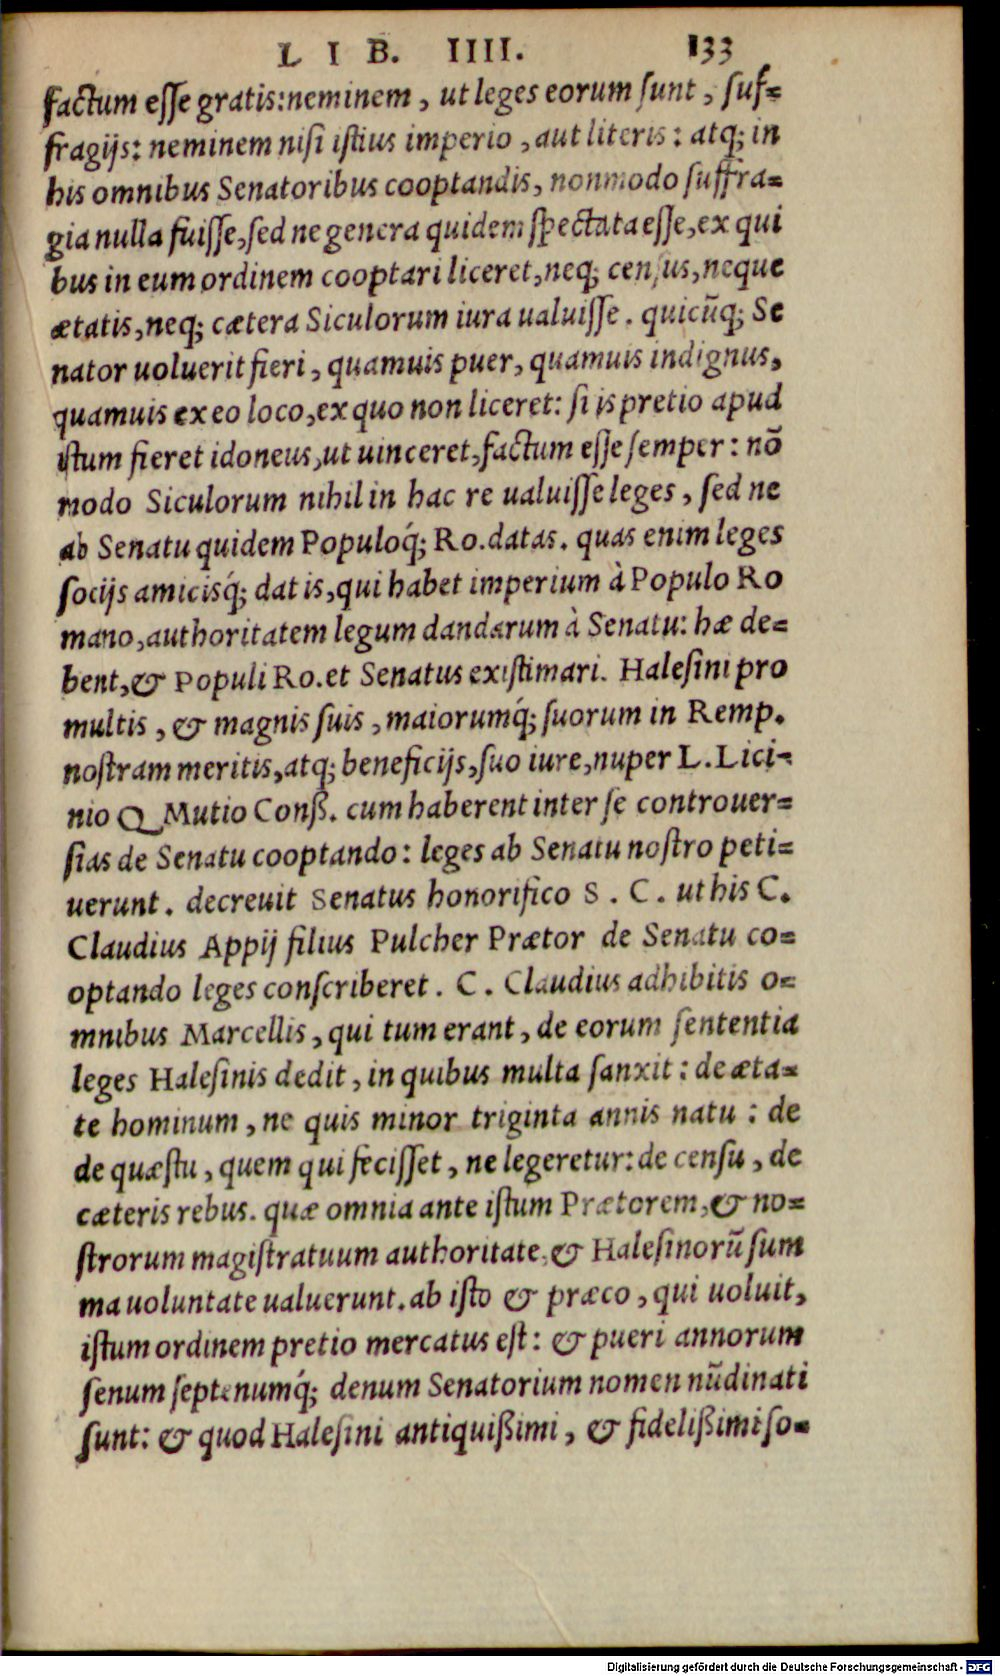 LIB. IIII. 133
factum eſſe gratis: neminem, ut leges eorum ſunt, ſuf=
fragijs: neminem niſi iſtius imperio, aut literis: atq; in
his omnibus Senatoribus cooptandis, nonmodo ſuffra=
gia nulla fuiſſe, ſed ne genera quidem ſpectata eſſe, ex qui
bus in eum ordinem cooptari liceret, neq; cenſus, neque
ætatis, neq; cætera Siculorum iura ualuiſſe. quicũq; Se
nator uoluerit fieri, quamuis puer, quamuis indignus,
quamuis ex eo loco, ex quo non liceret: ſi is pretio apud
iſtum fieret idoneus, ut uinceret, factum eſſe ſemper: nõ
modo Siculorum nihil in hac re ualuiſſe leges, ſed ne
ab Senatu quidem Populoq́; Ro. datas. quas enim leges
ſocijs amicisq́; dat is, qui habet imperium à Populo Ro
mano, authoritatem legum dandarum à Senatu: hæ de=
bent, & Populi Ro. et Senatus exiſtimari. Haleſini pro
multis, & magnis ſuis, maiorumq́; ſuorum in Remp.
noſtram meritis, atq; beneficijs, ſuo iure, nuper L. Lici-
nio Q Mutio Conß. cum haberent inter ſe controuer=
ſias de Senatu cooptando: leges ab Senatu noſtro peti=
uerunt. decreuit Senatus honorifico S. C. ut his C.
Claudius Appij filius Pulcher Prætor de Senatu co=
optando leges conſcriberet. C. Claudius adhibitis o=
mnibus Marcellis, qui tum erant, de eorum ſententia
leges Haleſinis dedit, in quibus multa ſanxit: de æta=
te hominum, ne quis minor triginta annis natu: de
de quæſtu, quem qui feciſſet, ne legeretur: de cenſu, de
cæteris rebus. quæ omnia ante iſtum Prætorem, & no=
ſtrorum magiſtratuum authoritate, & Haleſinorũ ſum
ma uoluntate ualuerunt. ab iſto & præco, qui uoluit,
iſtum ordinem pretio mercatus eſt: & pueri annorum
ſenum ſeptenumq́; denum Senatorium nomen nũdinati
ſunt: & quod Haleſini antiquißimi, & fidelißimi ſo=
Digitalisierung gefördert durch die Deutsche Forschungsgemeinschaft - DFG